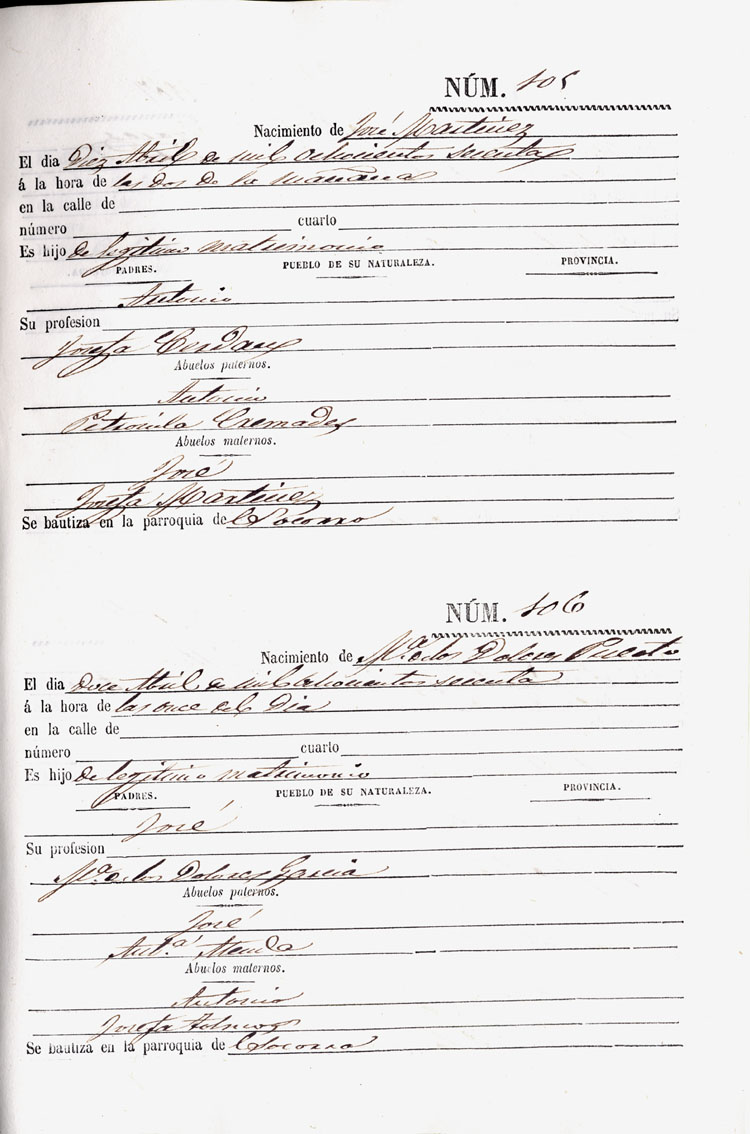 NÚM. 105
Nacimiento de José Martinez
El dia Diez Abril de mil ochocientos secenta
á la hora de las dos de la mañana
en la calle de
número cuarto
Es hijo de legitimo matrimonio
PADRES. PUEBLO DE SU NATURALEZA. PROVINCIA.
Antonio
Su profesion
Josefa Cerdan
Abuelos paternos.
Antonio
Petronila Cremades
Abuelos maternos.
José
Josefa Martinez
Se bautiza en la parroquia de Socorro
NÚM. 106
Nacimiento de Mª de los Dolores
El dia Doce Abril de mil ochocientos secenta
á la hora de las once del Dia
en la calle de
número cuarto
Es hijo de legitimo matrimonio
PADRES. PUEBLO DE SU NATURALEZA. PROVINCIA.
José
Su profesion
Mª de los Dolores Garcia
Abuelos paternos.
José
Antª
Abuelos maternos.
Antonio
Josefa
Se bautiza en la parroquia de Socorro